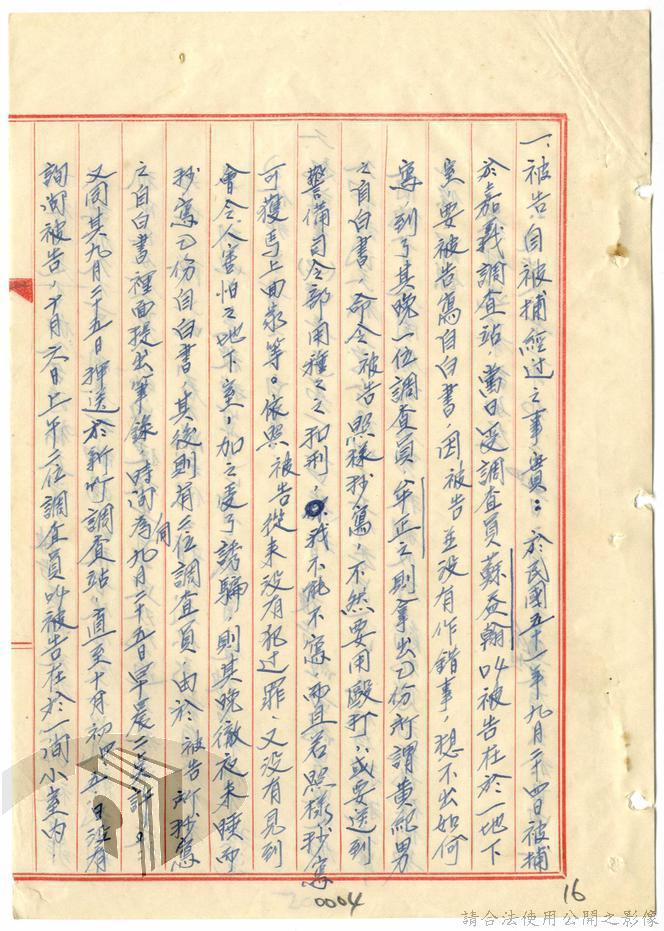 一、被告自被捕經过之事實：於民國五十一年九月二十四日被捕
於嘉義調查站，當日受調查員蘇益翰叫被告在於一地下
室，要被告寫自白書，因被告並沒有作錯事，想不出如何
寫，到了其晚一位調查員牟正之則拿出乙份所謂黃紀男
之自白書，命令被告照樣抄寫，不然要用毆打，或要送到
警備司令部用種々之扣刑，我不能不寫，而且若照樣抄寫
可獲馬上回家等。依照被告從來沒有犯过罪，又沒有見到
會令人害怕之地下室，加之受了誘騙，則其晚徹夜未睡而
抄寫乙份自白書，其後則有二位調查員，由於被告所抄寫
之自白書裡面提出筆錄，時间為同九月二十五日早晨二点計。
又同其九月二十五日押送於新竹調查站，直至十月初四五日沒有
詢问被告，十月六日上午二位調查員叫被告在於一间小室內，
0004
16
請合法使用公開之影像